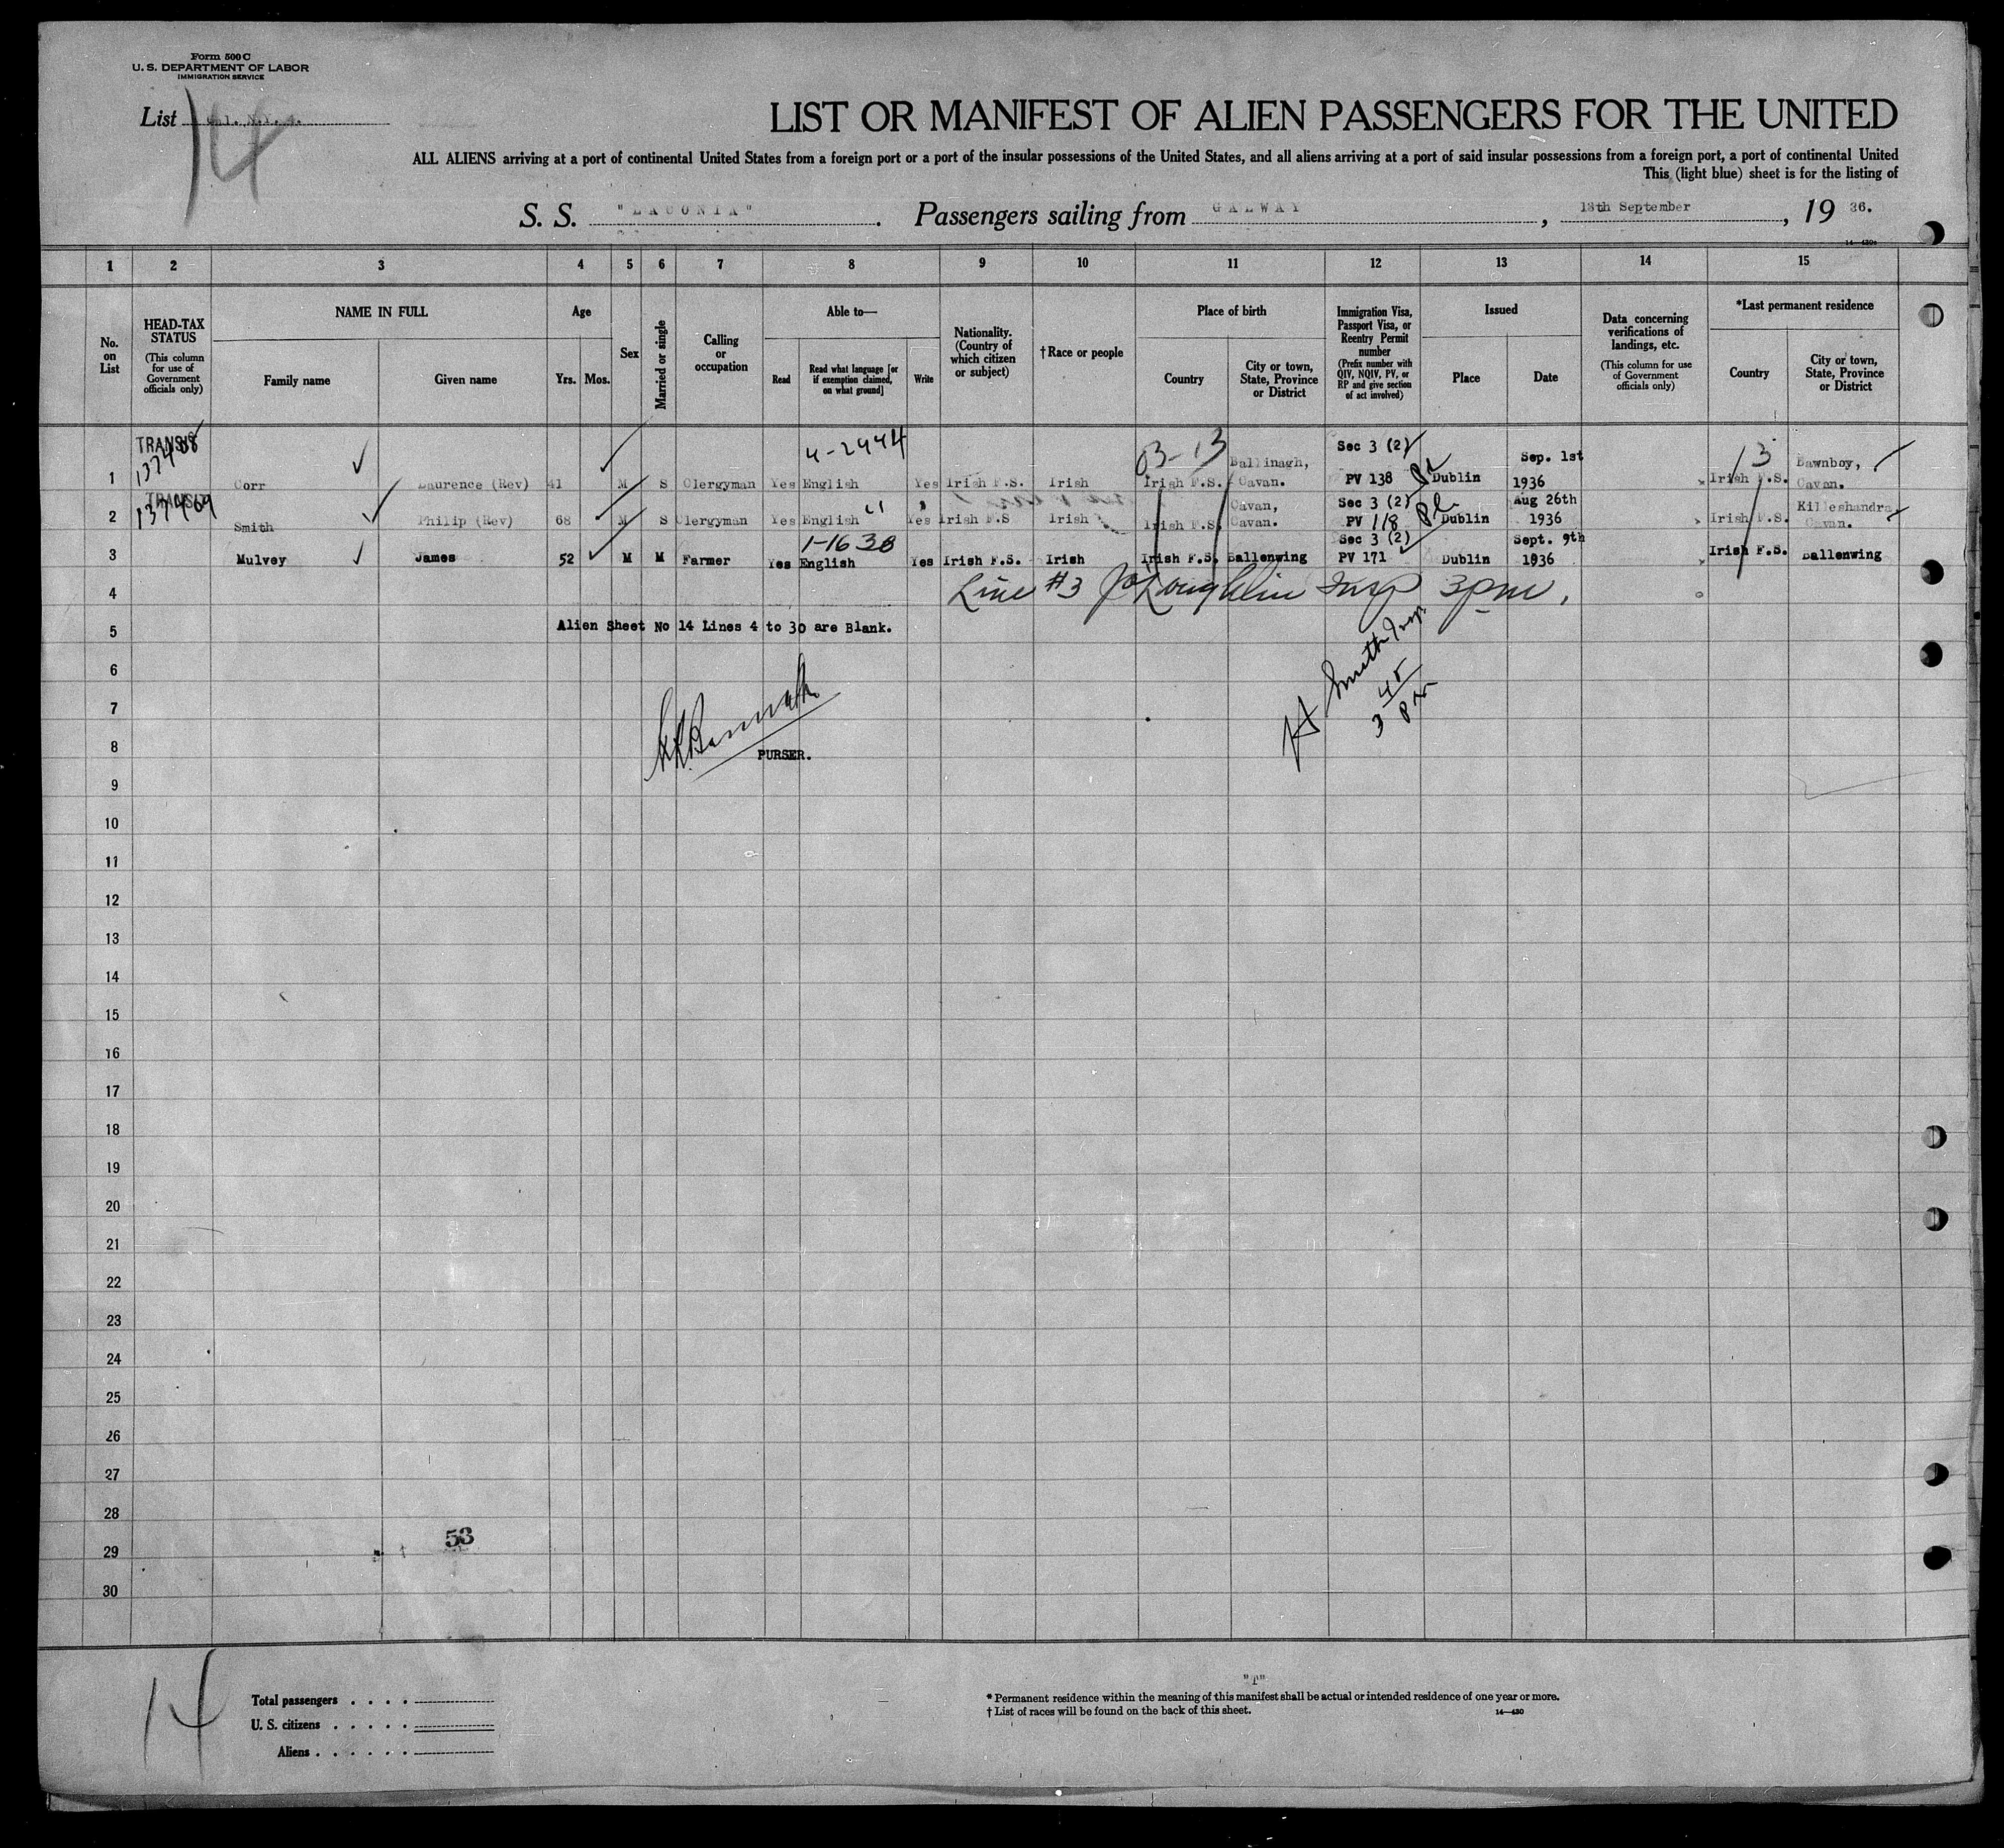 Form 500 C
U. S. DEPARTMENT OF LABOR
IMMIGRATION SERVICE
List
14
LIST OR MANIFEST OF ALIEN PASSENGERS FOR THE UNITED
ALL ALIENS arriving at a port of continental United States from a foreign port or a port of the insular possessions of the United States, and all aliens arriving at a port of said insular possessions from a foreign port, a port of continental United
This (light blue) sheet is for the listing of
S. S. "LACONIA". Passengers sailing from GALWAY, 13th September, 19 36.
1 2 3 4 5 6 7 8 9 10 11 12 13 14 15
No. on List
HEAD-TAX STATUS (This column for use of Government officials only)
NAME IN FULL
Family name
Given name
Age
Yrs. Mos.
Sex
Married or single
Calling or occupation
Able to—
Read
Read what language [or if exemption claimed, on what ground]
Write
Nationality. (Country of which citizen or subject)
† Race or people
Place of birth
Country
City or town, State, Province or District
Immigration Visa, Passport Visa, or Reentry Permit number (Prefix number with QIV, NQIV, PV, or RP and give section of act involved)
Issued
Place
Date
Data concerning verifications of landings, etc. (This column for use of Government officials only)
*Last permanent residence
Country
City or town, State, Province or District
TRANSIT 4-2444 03-13 Ballinagh, Sec 3 (2) Sep. 1st 13 Bawnboy,
1 Corr Laurence (Rev) 41 M S Clergyman Yes English Yes Irish F.S. Irish Irish F.S. Cavan. PV 138 Dublin 1936 Irish F.S. Cavan.
TRANSIT 137469 " Cavan, Sec 3 (2) Aug 26th Killeshandra
2 Smith Philip (Rev) 68 M S Clergyman Yes English Yes Irish F.S Irish Irish F.S. Cavan. PV 118 Dublin 1936 Irish F.S. Cavan.
1-1638 Sec 3 (2) Sept. 9th
3 Mulvey James 52 M M Farmer Yes English Yes Irish F.S. Irish Irish F.S. Ballenwing PV 171 Dublin 1936 Irish F.S. Ballenwing
4 Line #3 Loughlin Insp 3pm.
5 Alien Sheet No 14 Lines 4 to 30 are Blank.
6
Smith Insp.
3 45 PM
7
8 PURSER.
9
10
11
12
13
14
15
16
17
18
19
20
21
22
23
24
25
26
27
28
53
29
30
14
Total passengers . . . .
U. S. citizens . . . . .
Aliens . . . . . .
"T"
* Permanent residence within the meaning of this manifest shall be actual or intended residence of one year or more.
† List of races will be found on the back of this sheet.
14—430